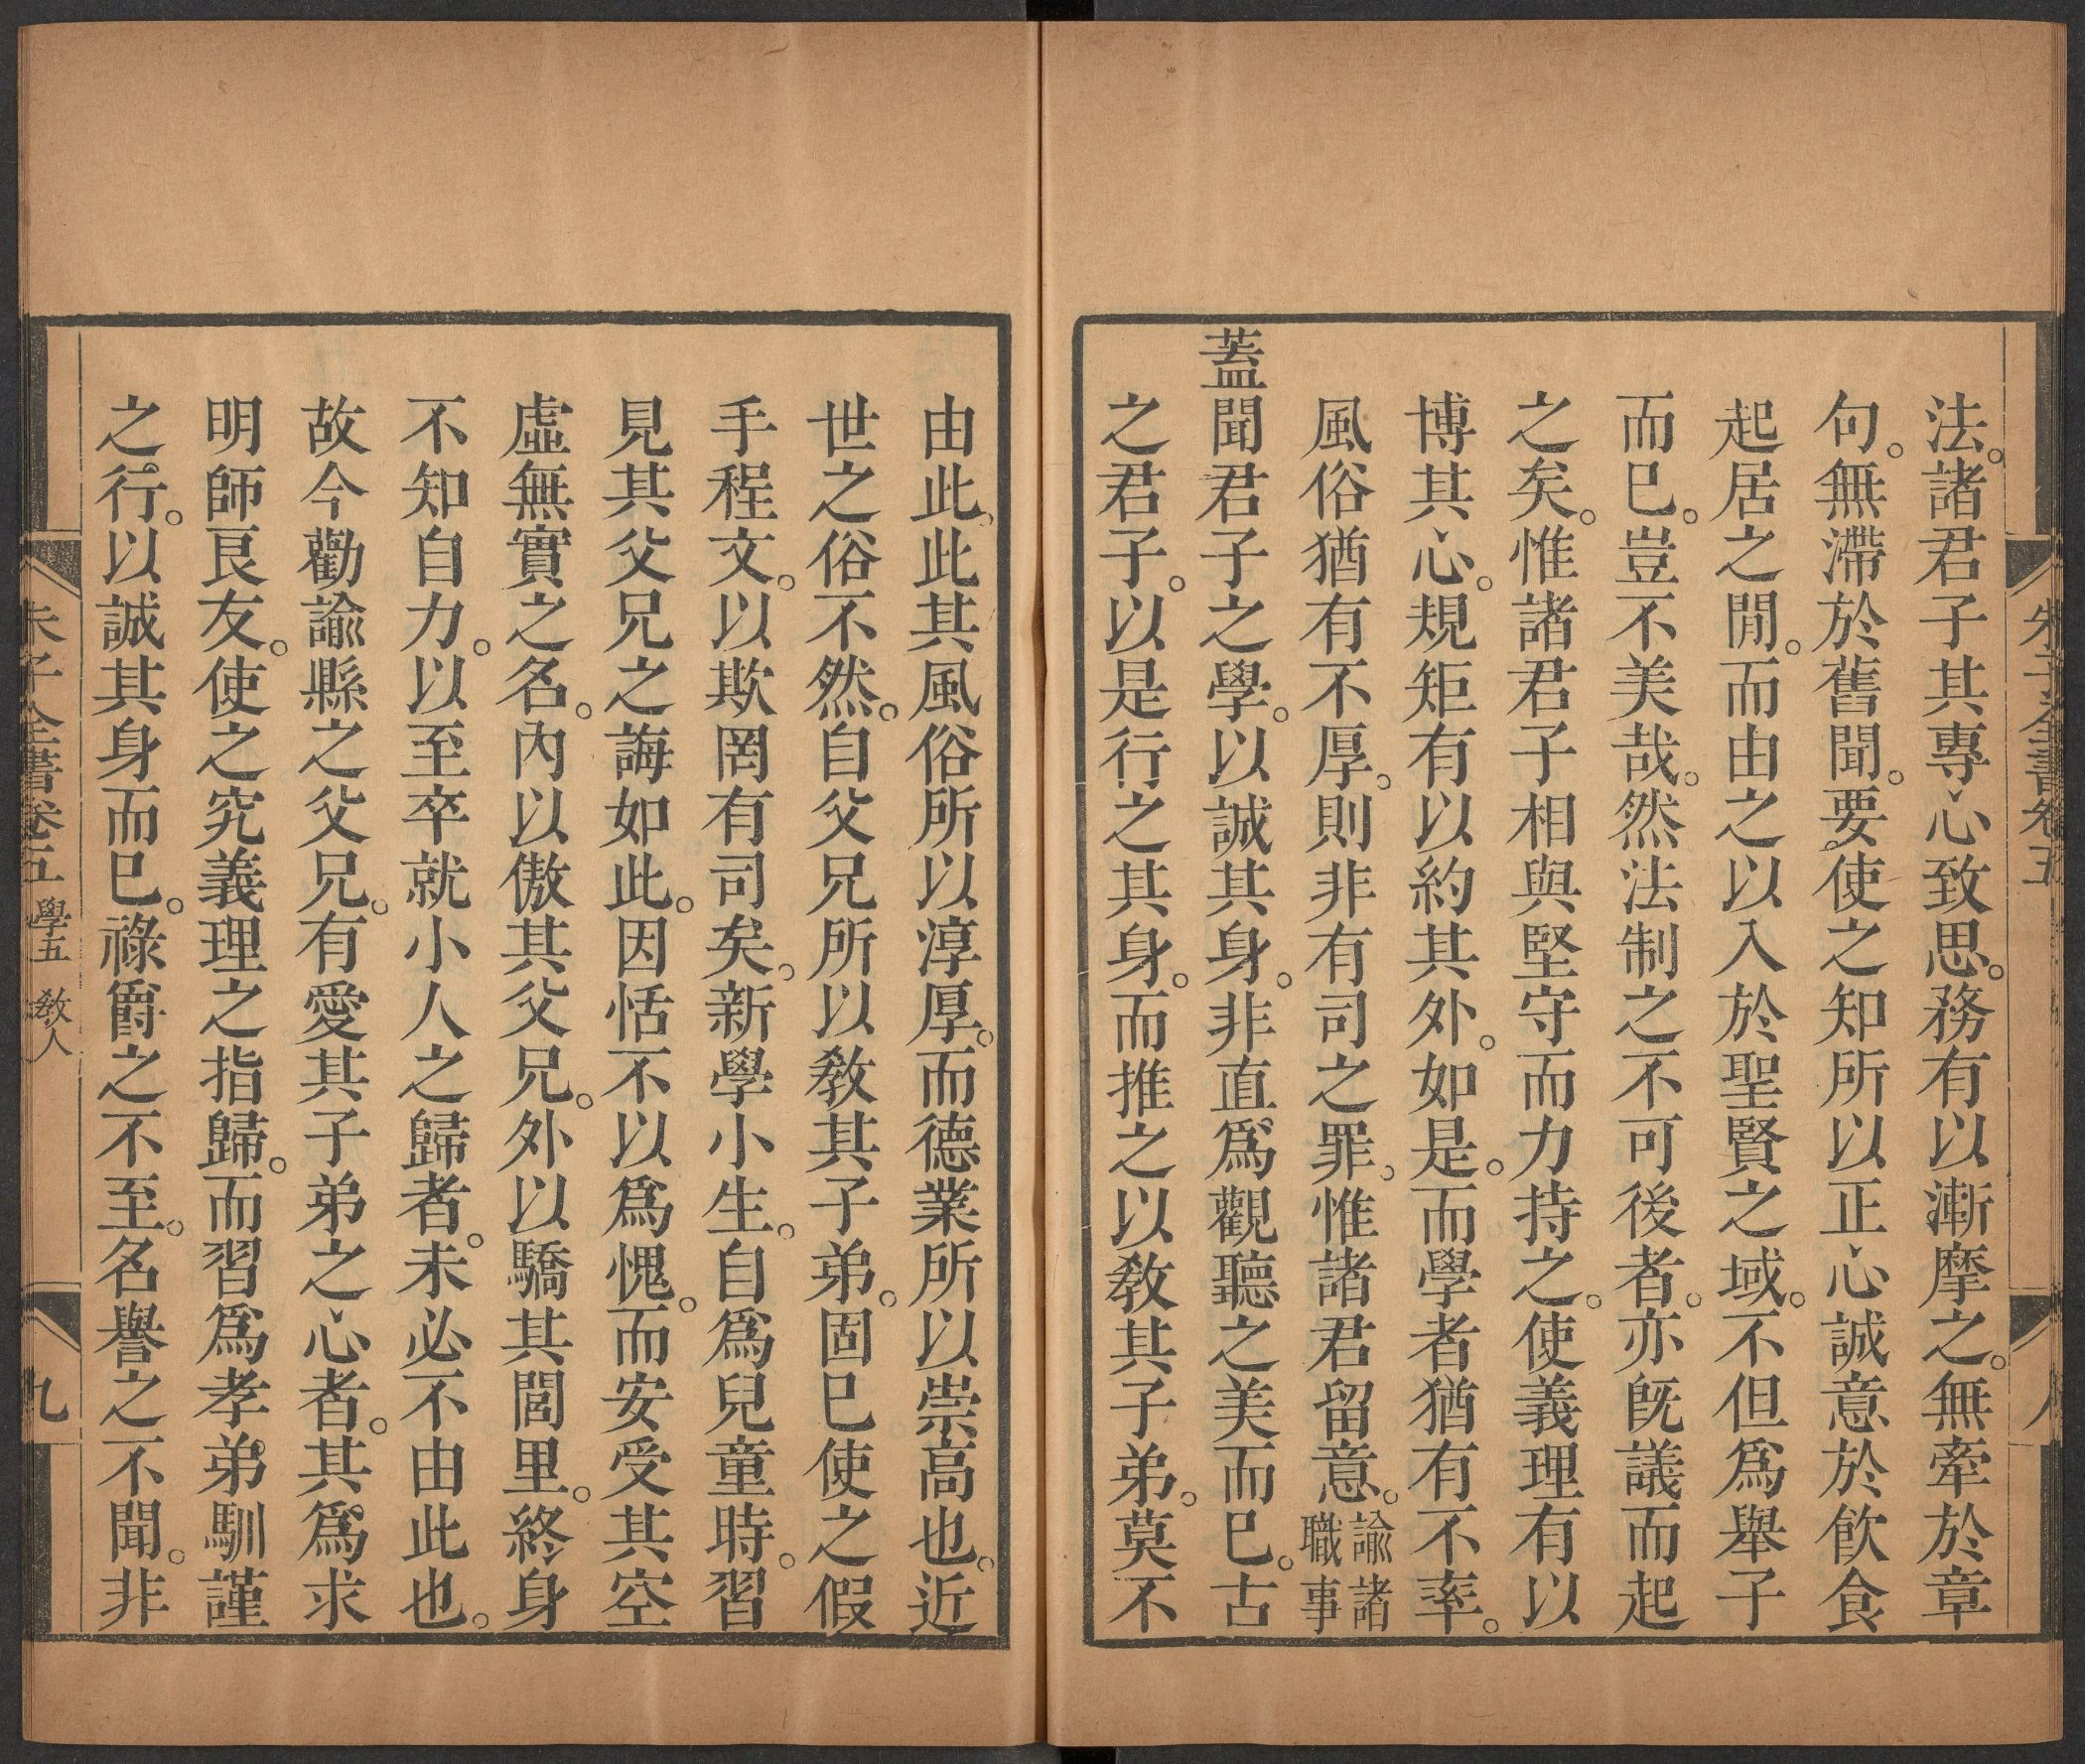 朱子全書卷五
法。諸君子其專心致思。務有以漸摩之。無牽於章
句。無滯於舊聞。要使之知所以正心誠意於飲食
起居之閒。而由之以入於聖賢之域。不但爲舉子
而已。豈不美哉。然法制之不可後者。亦旣議而起
之矣。惟諸君子相與堅守而力持之。使義理有以
博其心。規矩有以約其外。如是。而學者猶有不率。
風俗猶有不厚。則非有司之罪。惟諸君留意。諭諸職事
蓋聞君子之學。以誠其身。非直爲觀聽之美而已。古
之君子。以是行之其身。而推之以敎其子弟。莫不
由此。此其風俗所以淳厚。而德業所以崇高也。近
世之俗不然。自父兄所以敎其子弟。固已使之假
手程文。以欺罔有司矣。新學小生。自爲兒童時。習
見其父兄之誨如此。因恬不以爲愧。而安受其空
虛無實之名。內以傲其父兄。外以驕其閭里。終身
不知自力。以至卒就小人之歸者。未必不由此也。
故今勸諭縣之父兄。有愛其子弟之心者。其爲求
明師良友。使之究義理之指歸。而習爲孝弟馴謹
之行。以誠其身而已。祿爵之不至。名譽之不聞。非
朱子全書卷五 學五 敎人 九